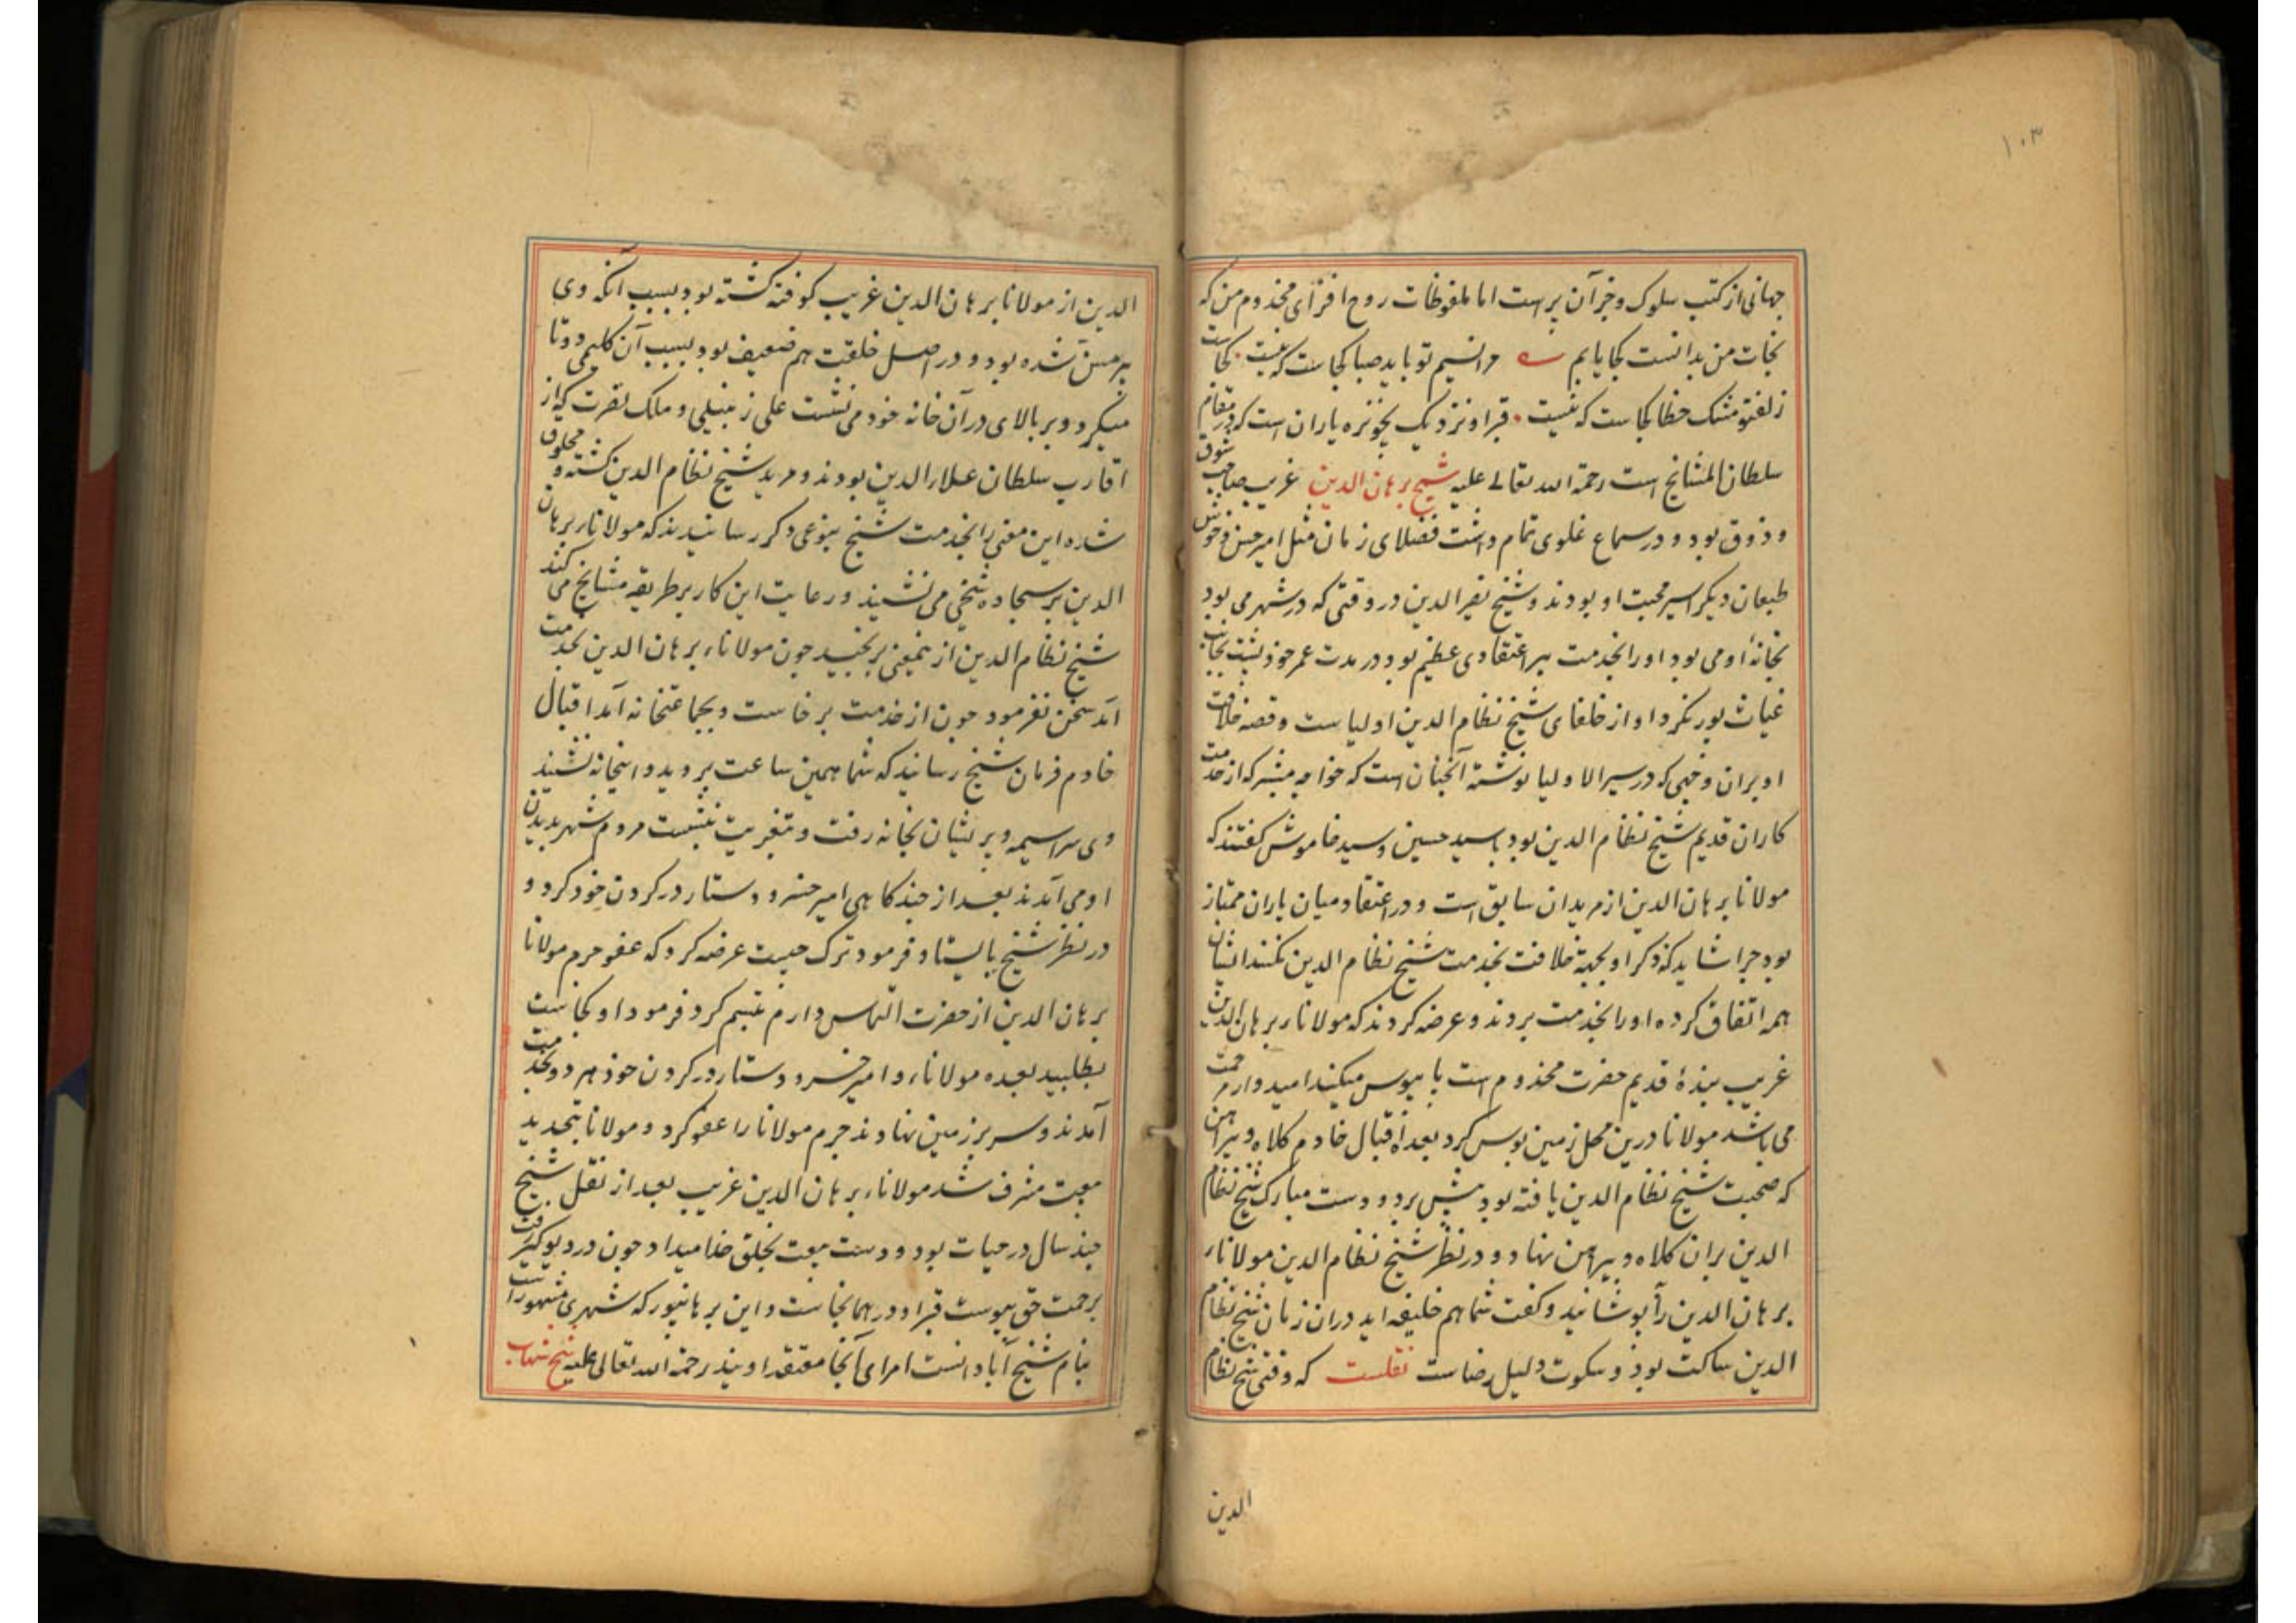 ۱۰۳
جهانی از کتب سلوک و جز آن پر است اما ملفوظات روح افزای مخدوم من که
نجات من بدانست کجا یابم مرا نسیم تو باید صبا کجاست که نیست کجاست
زلف تو مشک خطا کجاست که نیست قبر او نزدیک چوتره یاران است که در مقام
سلطان المشایخ است رحمة الله تعالی علیه شیخ برهان الدین غریب صاحب شوق
و ذوق بود و در سماع غلوی تمام داشت فضلای زمان مثل امیر حسن و خوش
طبعان دیگر اسیر محبت او بودند و شیخ نصیر الدین در وقتی که در شهر می بود
بخانهٔ او می بود او را بخدمت پیر اعتقادی عظیم بود در مدت عمر خود پشت بجانب
غیاث پور نکرد او از خلفای شیخ نظام الدین اولیا ست و قصه خلافت
او بران وجهی که در سیر الاولیا نوشته آنچنان است که خواجه مبشر که از خدمت
کاران قدیم شیخ نظام الدین بود با سید حسین و سید خاموش گفتند که
مولانا برهان الدین از مریدان سابق است و در اعتقاد میان یاران ممتاز
بود چرا شاید که ذکر او بجهة خلافت بخدمت شیخ نظام الدین نکنند ایشان
همه اتفاق کرده او را بخدمت بردند و عرضه کردند که مولانا برهان الدین
غریب بندهٔ قدیم حضرت مخدوم است پایبوس میکند امیدوار مرحمت
می باشد مولانا درین محل زمین بوس کرد بعده اقبال خادم کلاه و پیراهن
که صحبت شیخ نظام الدین یافته بود پیش برد و دست مبارک شیخ نظام
الدین بران کلاه و پیراهن نهاد و در نظر شیخ نظام الدین مولانا
برهان الدین را پوشانید و گفت شما هم خلیفه اید دران زمان شیخ نظام
الدین ساکت بود و سکوت دلیل رضاست نقلست که وقتی شیخ نظام
الدین
الدین از مولانا برهان الدین غریب کوفته گشته بود بسبب آنکه وی
پیر مسن شده بود و در اصل خلقت هم ضعیف بود بسبب آن گلیمی دوتا
میکرد و بر بالای در آن خانه خود می نشست علی زنبیلی و ملک نصرت که از
اقارب سلطان علاء الدین بودند و مرید شیخ نظام الدین گشته و محلوق
شده این معنی را بخدمت شیخ بنوعی دگر رسانیدند که مولانا برهان
الدین بر سجاده شیخی می نشیند و رعایت این کار بر طریقه مشایخ می کند
شیخ نظام الدین ازینمعنی برنجید چون مولانا برهان الدین بخدمت
آمد سخن نفرمود چون از خدمت برخاست و بجماعتخانه آمد اقبال
خادم فرمان شیخ رسانید که شما همین ساعت بروید و اینجا نه نشینید
وی سراسیمه و پریشان بخانه رفت و بتعزیت بنشست مردم شهر بدیدن
او می آمدند بعد از چند گاهی امیر خسرو دستار در گردن خود کرد و
در نظر شیخ بایستاد فرمود ترک چیست عرضه کرد که عفو جرم مولانا
برهان الدین از حضرت التماس دارم تبسم کرد فرمود او کجاست
بطلبید بعده مولانا و امیر خسرو دستار در گردن خود هر دو بخدمت
آمدند و سر بر زمین نهادند جرم مولانا را عفو کرد و مولانا بتجدید
بیعت مشرف شد مولانا برهان الدین غریب بعد از نقل شیخ
چند سال در حیات بود و دست بیعت بخلق خدا میداد چون در دیوگیر رفت
برحمت حق پیوست قبر او در همانجاست و این برهانپور که شهری مشهور است
بنام شیخ آبادانست امرای آنجا معتقد اویند رحمة الله تعالی علیه شیخ شهاب